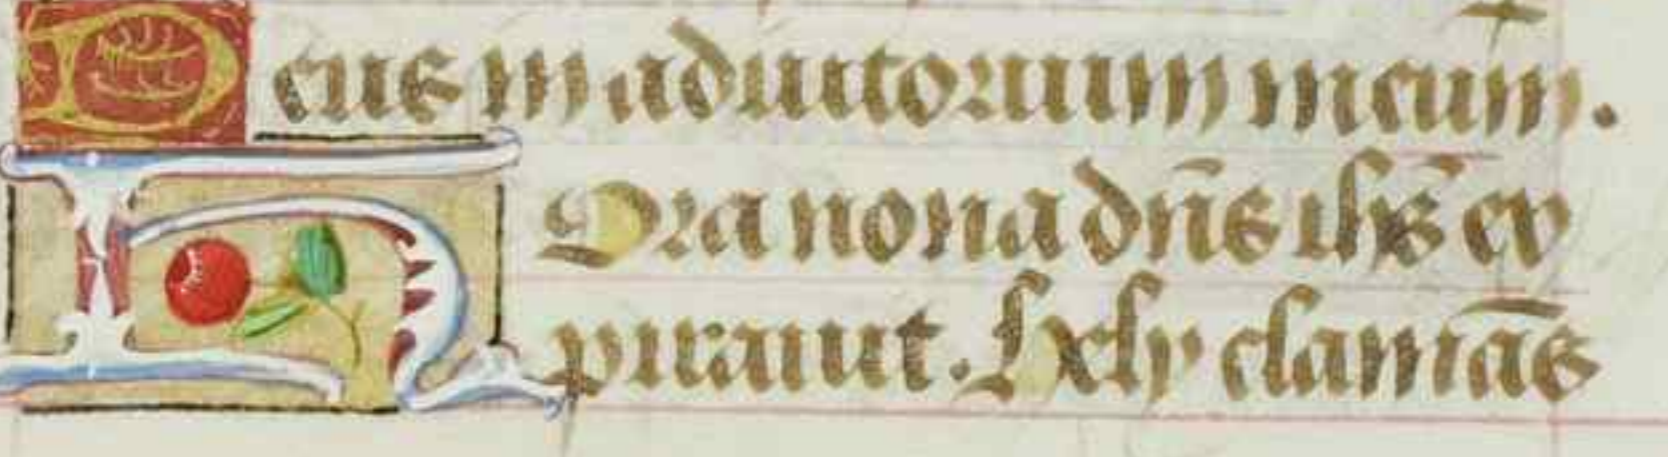 Deus in adiutorium meum.
Hora nona dn̄s ih̄s ex
pirauit. Hely clamās